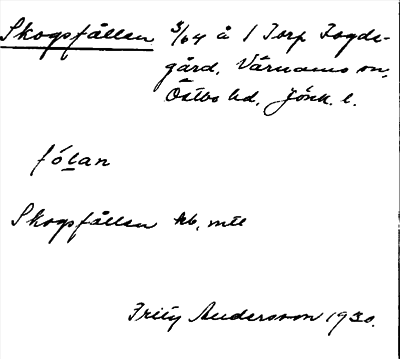 Skogsfållan 3/64 å 1 Torp Fogde-
gård, Värnamo sn,
Östbo hd, Jönk. l.
fólan
Skogsfållan kb, mtl
Fritz Andersson 1930.